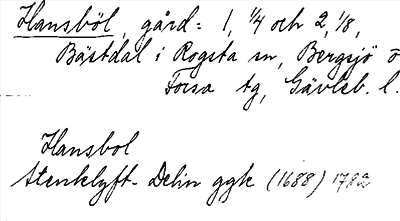 Hansböl, gård: 1, 1/4 och 2, 1/8,
Bästdal i Rogsta sn, Bergsjö o
Forsa tg, Gävleb. l.
Hansbol
Stenklyft- Delin ggk (1688) 1782